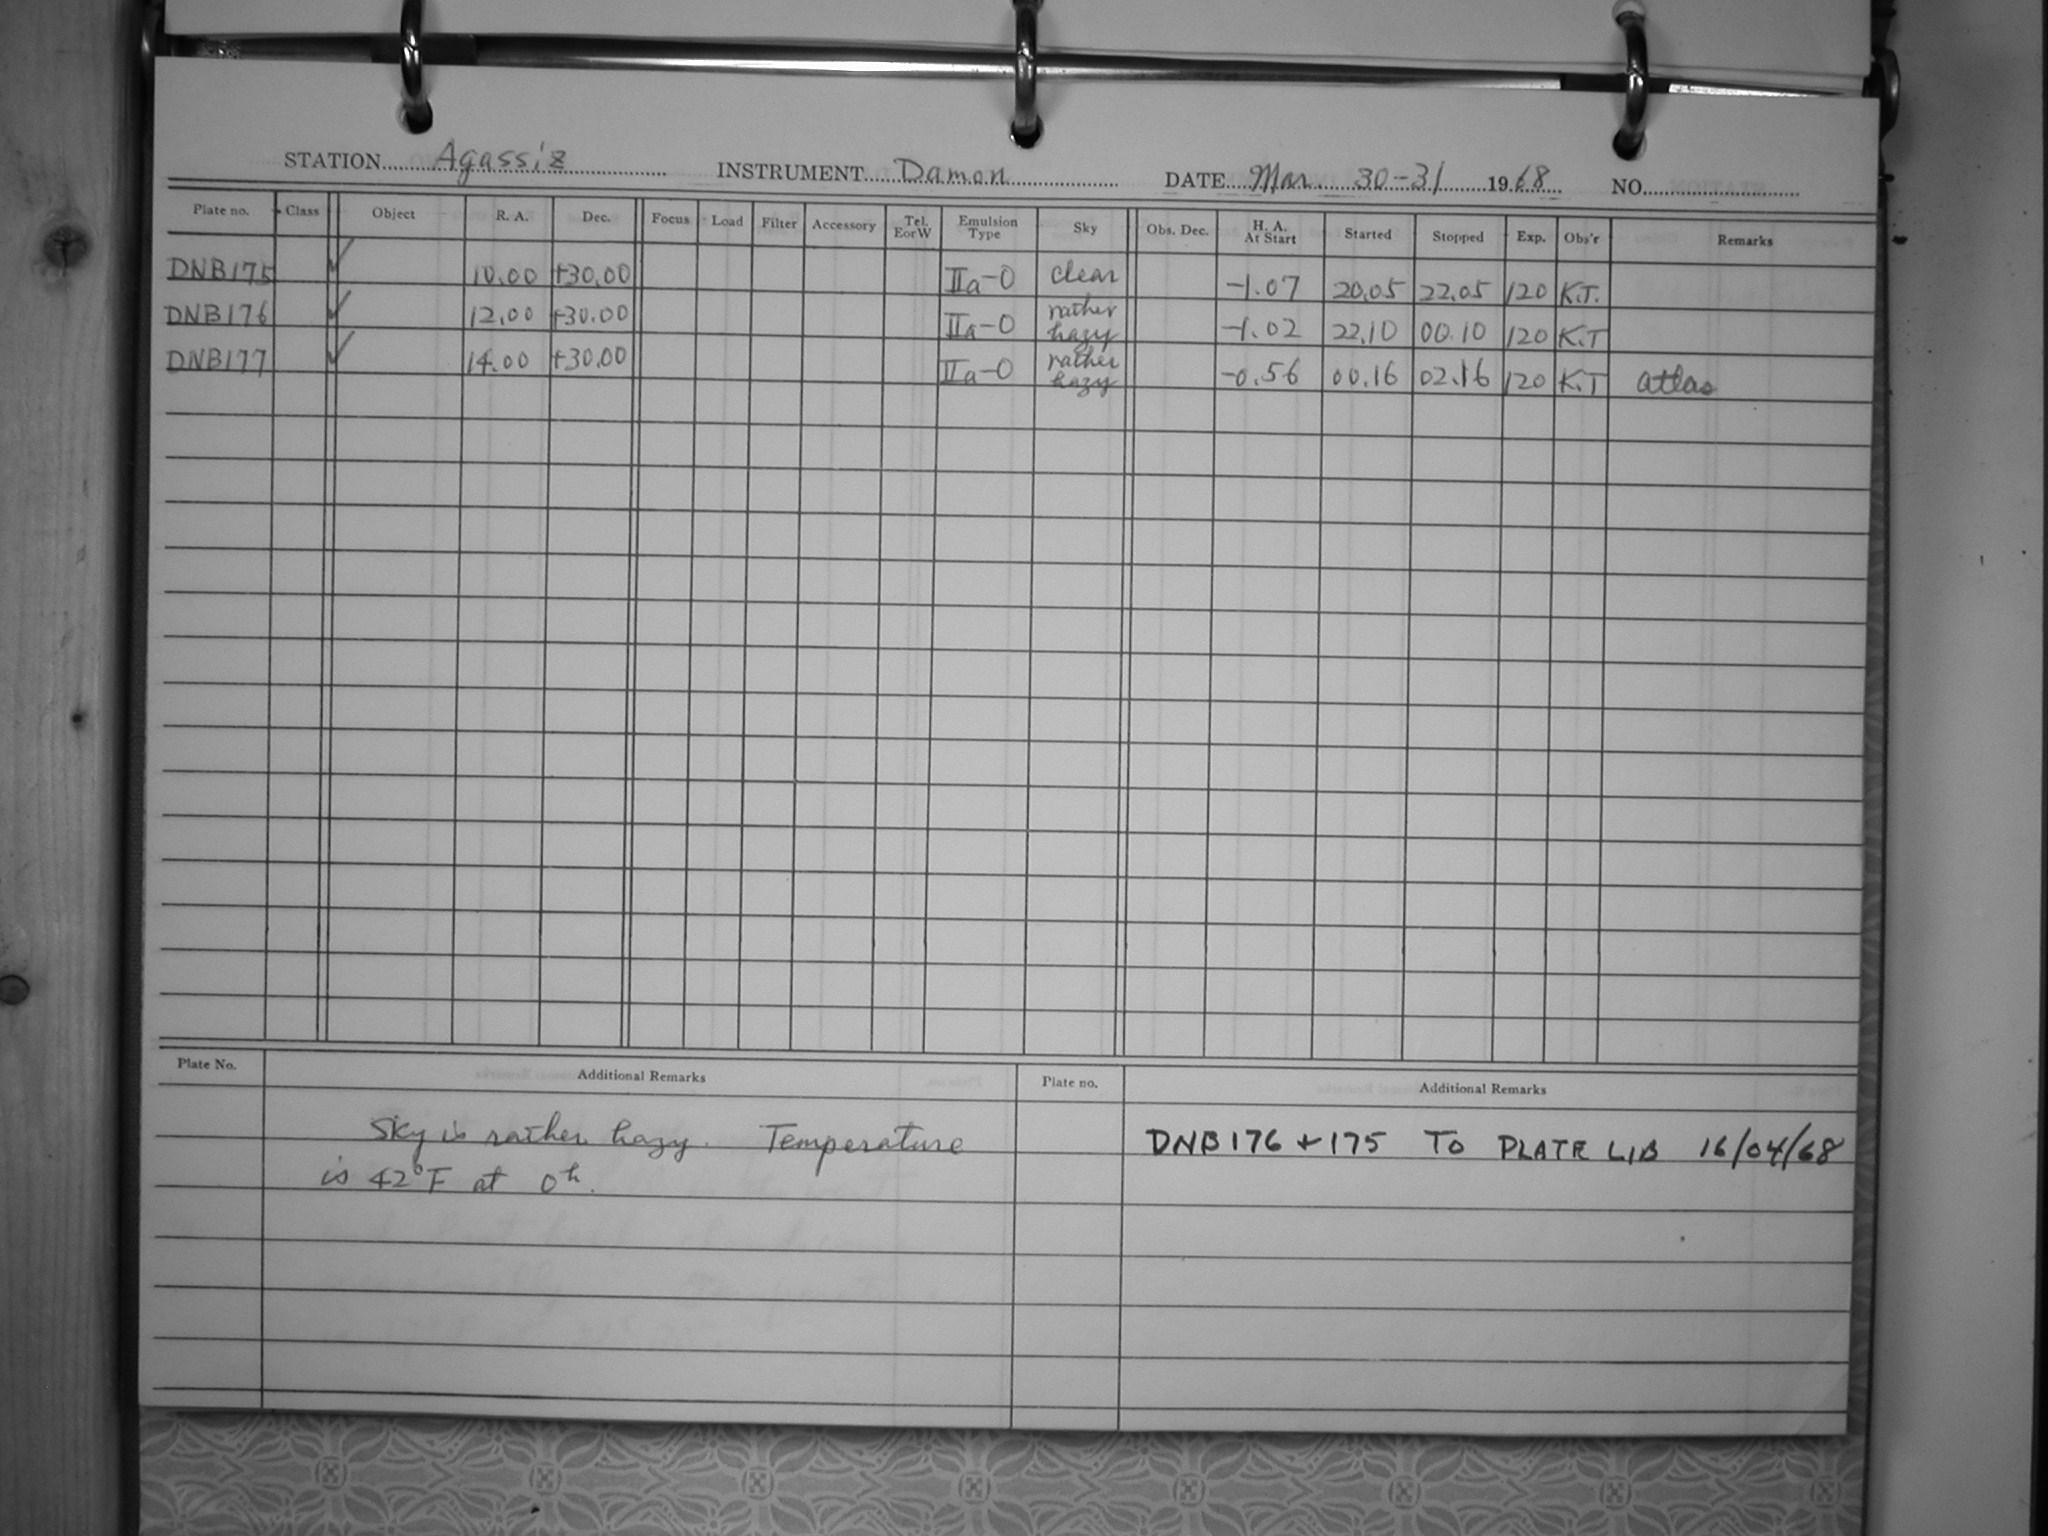 STATION Agassiz INSTRUMENT Damon DATE Mar. 30-31 1968 NO.
Plate no. Class Object R. A. Dec. Focus Load Filter Accessory Tel. EorW Emulsion Type Sky Obs. Dec. H. A. At Start Started Stopped Exp. Obs'r Remarks
DNB175 ✓ 10.00 +30.00 IIa-O clear -1.07 20.05 22.05 120 K.T.
DNB176 ✓ 12.00 +30.00 IIa-O rather hazy -1.02 22.10 00.10 120 K.T
DNB177 ✓ 14.00 +30.00 IIa-O rather hazy -0.56 00.16 02.16 120 K.T atlas
Plate No. Additional Remarks Plate no. Additional Remarks
Sky is rather hazy. Temperature
is 42°F at 0h.
DNB176 + 175 TO PLATE LIB 16/04/68